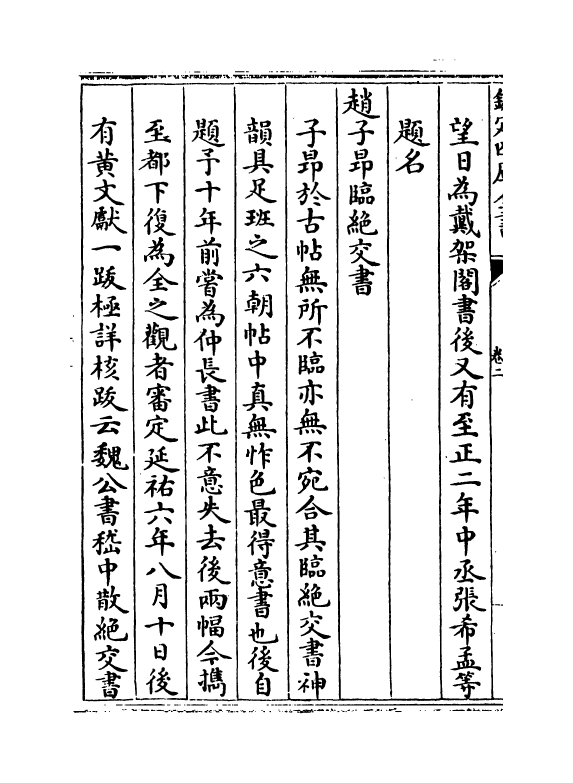 欽定四庫全書
卷二
望日為戴架閣書後又有至正二年中丞張希孟等
題名
趙子昂臨絕交書
子昂於古帖無所不臨亦無不宛合其臨絕交書神
韻具足班之六朝帖中真無怍色最得意書也後自
題予十年前嘗為仲長書此不意失去後兩幅今攜
至都下復為全之觀者審定延祐六年八月十日後
有黃文獻一跋極詳核跋云魏公書嵇中散絕交書